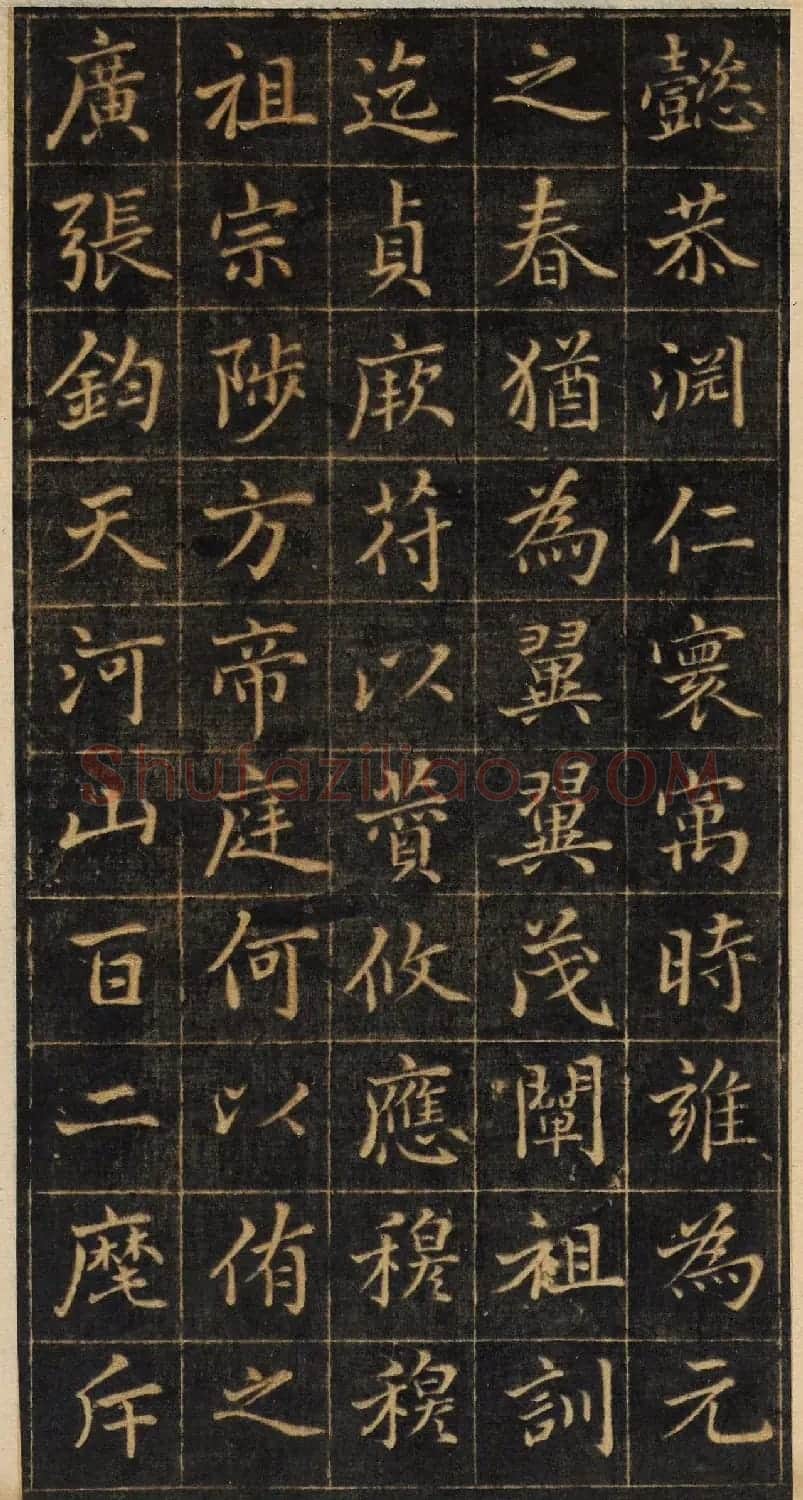 懿恭淵仁寰寓時雍為元
之春猶為翼翼茂闡祖訓
迄貞厥苻以攸應穆穆
祖宗陟方帝庭何以侑之
廣張鈞天河山百二麾斥
Shufaziliao.COM